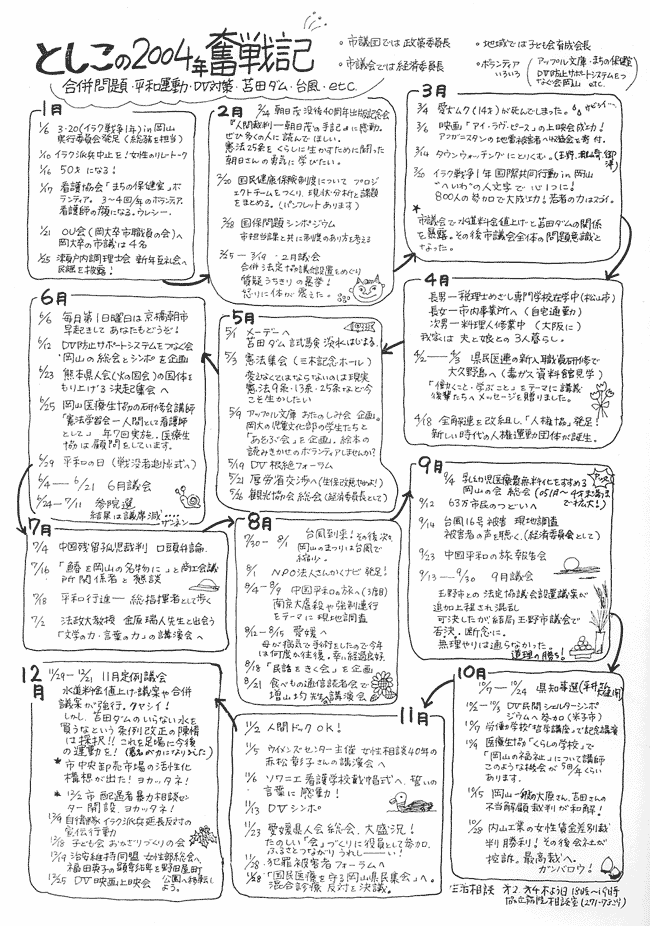 としこの2004年奮戦記
合併問題・平和運動・DV対策・苫田ダム・台風・etc.
・市議団では政策委員長
・市議会では経済委員長
・地域では子ども育成会長
・ボランティアいろいろ
アップル文庫・まちの保健室
DV防止サポートシステムをつなぐ会岡山 etc.
1月
1/6 3・20(イラク戦争1年)in岡山
実行委員会発足(総務を担当)
1/10 イラク派兵中止を!女性のリレートーク
1/16 50才になる!
1/17 看護協会「まちの保健室」ボ
ランティア。3〜4回/年のボランティア。
看護師の顔になる。ウレシー。
1/21 OU会(岡大卒市職員の会)へ
岡大卒の市議は4名
1/25 瀬戸内調理士会 新年互礼会へ
民謡を披露!
2月
2/24 朝日茂没後40周年出版記念会
『人間裁判―朝日茂の手記』に感動。
ぜひ多くの人に読んでほしい。
憲法25条をくらしに生かすために闘った
朝日さんの勇気に学びたい。
2/20 国民健康保険制度について プロジ
ェクトチームをつくり、現状・分析と課題
をまとめる。(パンフレットあります)
2/28 国保問題シンポジウム
市担当課と共に制度のあり方を考える
2/25〜3/19・2月議会
合併法定協議会設置をめぐり
質疑うちきりの暴挙!
怒りに体が震えた。
3月
3/4 愛犬ムク(14才)が死んでしまった。
3/6 映画「アイ・ラヴ・ピース」の上映会成功!
アフガニスタンの地雷被害者へ収益金を寄付。
3/14 タウンウォッチングにとりくむ。
3/20 イラク戦争1年国際共同行動in岡山
"へいわ"の人文字で心1つに!
800人の参加で大成功!若者の力はスゴイ。
市議会で水道料金値上げと苫田ダムの関係
を暴露。その後市議会全体の問題意識と
なった。
4月
長男―税理士めざし専門学校在学中(松山市)
長女―市内事業所へ(自宅通勤)
次男―料理人修業中(大阪に)
我家は 夫と娘との3人暮らし。
4/2〜3 県民医連の新人職員研修で
大久野島へ(毒ガス資料館見学)
「働くこと・学ぶこと」をテーマに講義。
後輩たちへメッセージを贈りました。
4/18 全解連を改組し、「人権協」発足!
新しい時代の人権運動団体が誕生。
5月
5/1 メーデーへ
苫田ダム試験湛水はじまる。
5/3 憲法集会(三木記念ホール)
変えなくてはならないのは現実
憲法9条・13条・25条など今
こそ生かしたい
5/9 アップル文庫 おたのしみ会 企画。
岡大の児童文化部の学生たちと
「あそぶ会」を企画。絵本の
読みきかせのボランティアしませんか?
5/19 DV根絶フォーラム
5/21 厚労省交渉へ(生保改悪やめよ!)
5/26 観光協会総会(経済委員長として)
6月
6/6 毎月第1日曜日は京橋朝市
早起きしてあなたもどうぞ!
6/12 DV防止サポートシステムをつなぐ会
・岡山の総会とシンポを企画
6/23 熊本県人会(火の国会)の国体を
もり上げる決起集会へ
6/25 岡山医療生協の研修会講師
「憲法学習会―人間として看護師
として」年7回実施。医療生
協は顧問をしています。
6/29 平和の日(戦没者追悼式へ)
6/4〜6/21 6月議会
6/24〜7/11 参院選
結果は議席減・・・・ザンネン
7月
7/4 中国残留孤児裁判 口頭弁論
7/16 「鰆を岡山の名物に」と商工会議
所関係者と懇談
7/18 平和行進―総指揮者として歩く
7/2 法政大教授 金原瑞人先生と出会う
「文学の力・言葉の力」の講演会へ
8月
7/30〜8/1 台風到来!その後次々
岡山のまつりは台風で
縮少。
8/1 NPO法人さんかくナビ発足!
8/4〜8/9 中国平和の旅へ(3度目)
南京大虐殺や強制連行
をテーマに現地調査
8/12〜8/15 愛媛へ
母が病気で手術をしたので今年
は何度か往復。幸い経過良好
8/18 「民話をきく会」を企画
8/21 食べもの通信読者会で
増山均先生講演会
9月
9/4 乳幼児医療費無料化をすすめる
岡山の会 総会
9/12 63万市民のつどいへ
9/14 台風16号被害 現地調査
被害者の声を聴く。(経済委員会として)
9/23 中国平和の旅報告会
9/13〜9/30 9月議会
玉野市との法定協議会設置議案が
追加上程され混乱
可決したが結局玉野市議会で
否決。断念に。
無理やりは通らなかった。
道理の勝ち!
10月
10/7〜10/24 県知事選
10/2〜10/3 DV民間シェルターシンポ
ジウムへ参加(米子市)
10/7 労働学校「哲学講座」で記念講演
10/4 医療生協「くらしの学校」で
「岡山の福祉」について講師
このような機会が年5回くらい
あります。
10/5 岡山一般の大原さん、吉田さんの
不当解雇裁判が和解!
10/28 内山工業の女性賃金差別裁
判勝利!その後会社が
控訴。最高裁へ。
ガンバロウ!
11月
11/2 人間ドックOK!
11/5 ウィメンズ・センター主催 女性相談40年の
赤松彰子さんの講演会へ
11/6 ソワニエ看護学校戴帽式へ、誓いの
言葉に感動!
11/13 DVシンポ
11/23 愛媛県人会総会、大盛況!
たのしい「会」づくりに役員として参加。
ふるさとつながりうれしーい!
11/28 犯罪被害者フォーラムへ
11/28 「国民医療を守る岡山県民集会」へ。
混合診療反対を決議。
12月
11/29〜12/21 11月定例議会
水道料金値上げ議案や合併
議案が強行。クヤシイ!
しかし、苫田ダムのいらない水を
買うなという条例改正の陳情
は採択!!これを足場に今後
の運動を!
★市中央卸売市場の活性化
構想が出た!ヨカッタネ!
★12/2 市配遇者暴力相談セン
ター開設、ヨカッタネ!
12/4 自衛隊イラク派兵延長反対の
宣伝行動
12/18 子ども会 おかざりづくりの会
12/19 治安維持同盟 女性部総会へ。
福田英子の顕彰碑を野田屋町
公園へ移転しよう。
12/25 DV映画上映会
生活相談 オ2、オ4木よう日18時〜19時
協立病院相談室(271-7229)